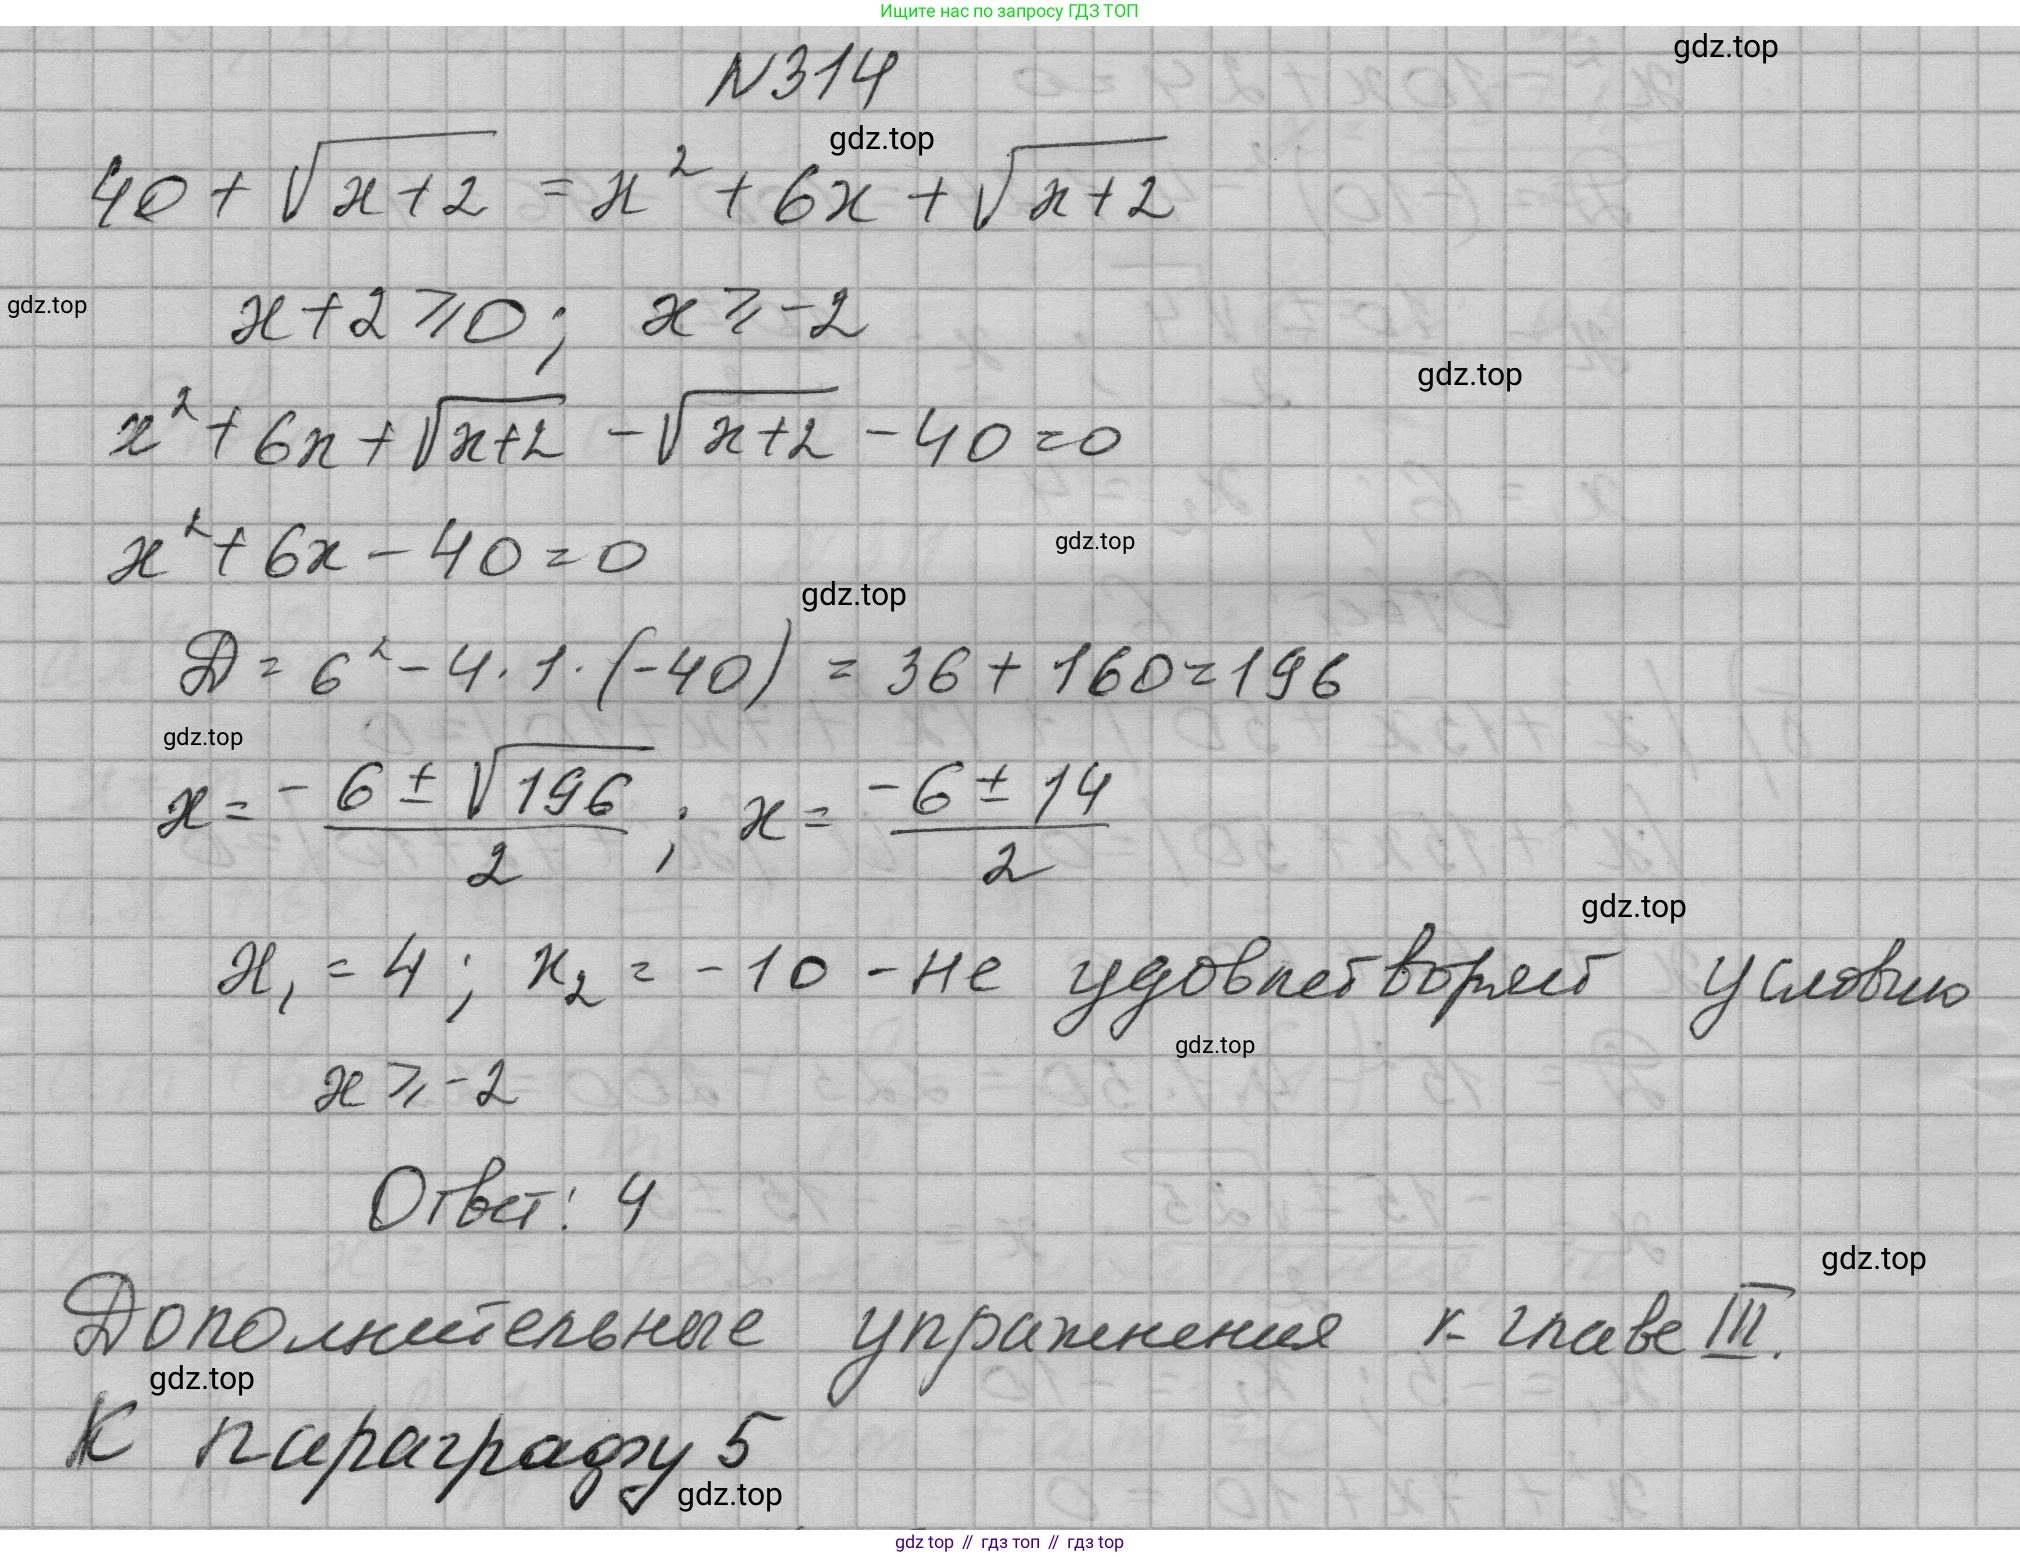 Ищите нас по запросу ГДЗ ТОП
gdz.top
N314
gdz.top
40 + √(x+2) = x² + 6x + √(x+2)
gdz.top
x+2 ⩾ 0; x ⩾ -2
gdz.top
x² + 6x + √(x+2) - √(x+2) - 40 = 0
gdz.top
x² + 6x - 40 = 0
gdz.top
D = 6² - 4·1·(-40) = 36 + 160 = 196
gdz.top
x = (-6 ± √196)/2; x = (-6 ± 14)/2
gdz.top
x₁ = 4; x₂ = -10 - не удовлетворяет условию
gdz.top
x ⩾ -2
Ответ: 4
gdz.top
Дополнительные упражнения к главе III.
gdz.top
К параграфу 5
gdz.top
gdz top // гдз топ // гдз top